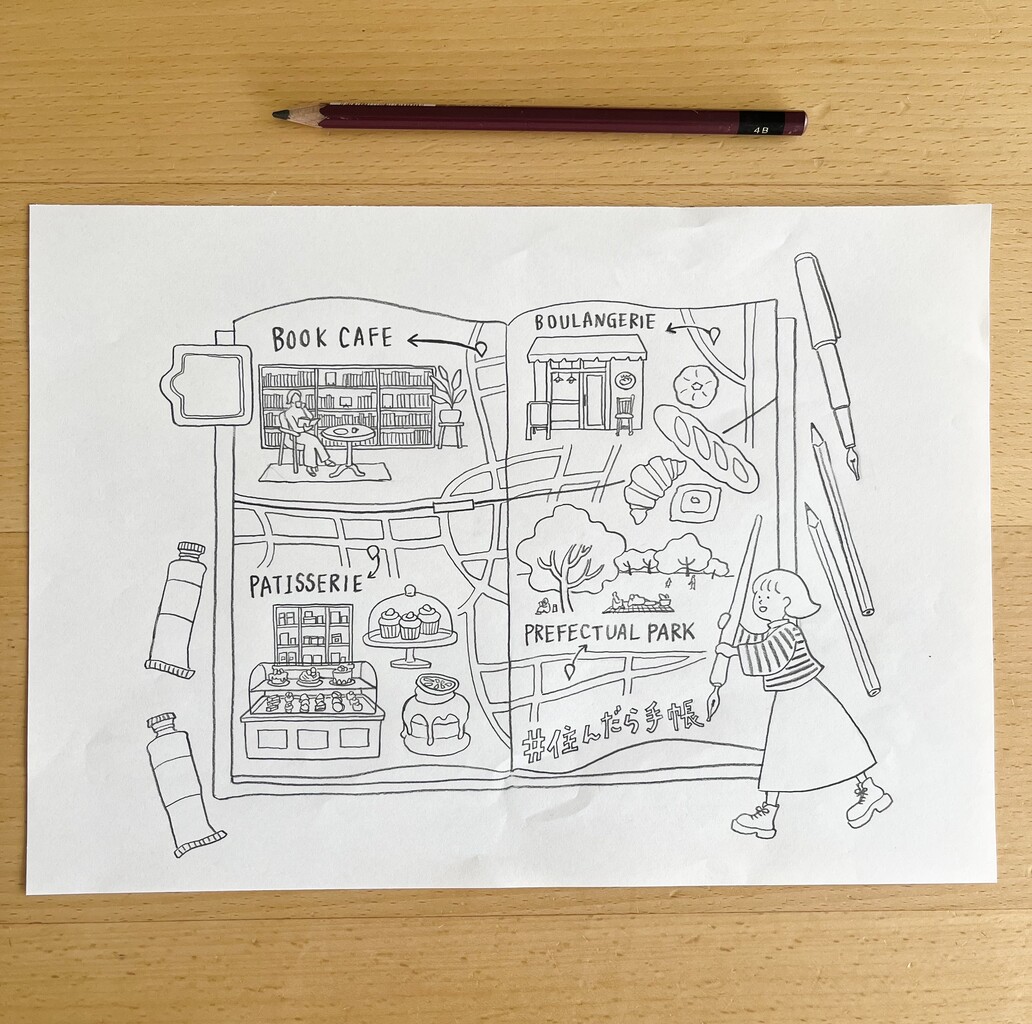 4B
BOOK CAFE
BOULANGERIE
PATISSERIE
PREFECTUAL PARK
#住んだら手帳